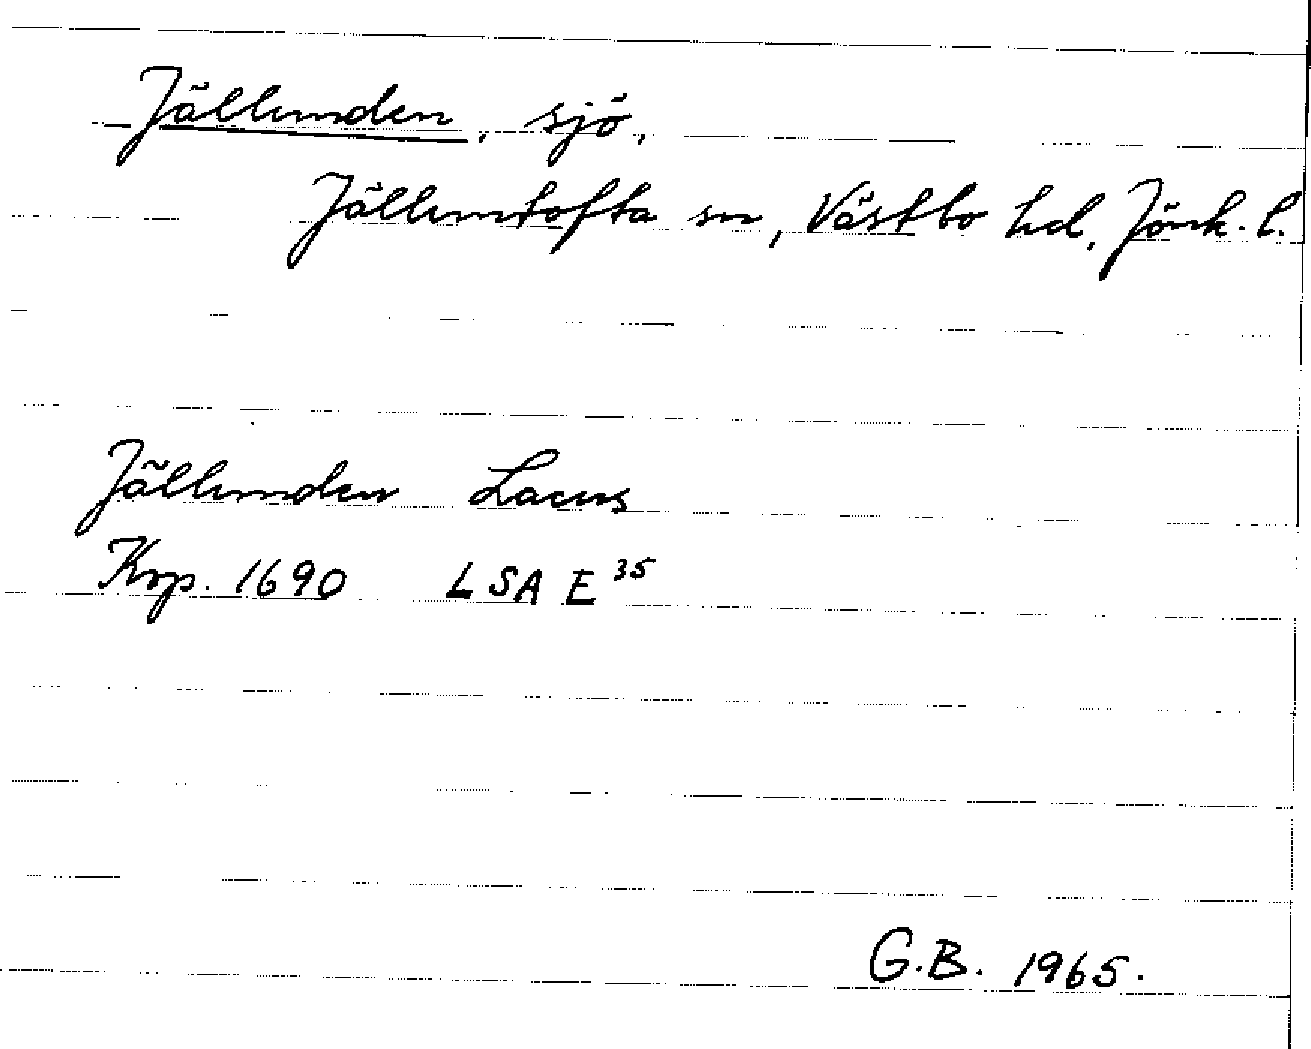 Jällunden, sjö,
Jälluntofta sn, Västbo hd, Jönk. l.
Jällunden Lacus
Kop. 1690 LSA E 35
G.B. 1965.